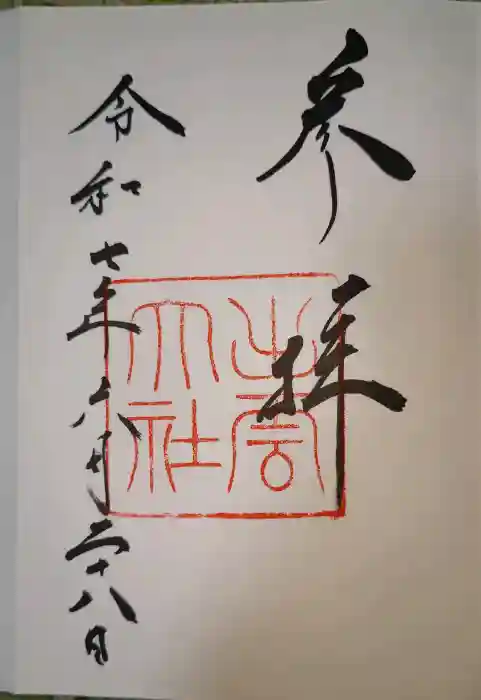 参拝
出雲
大社
令和七年六月二十八日